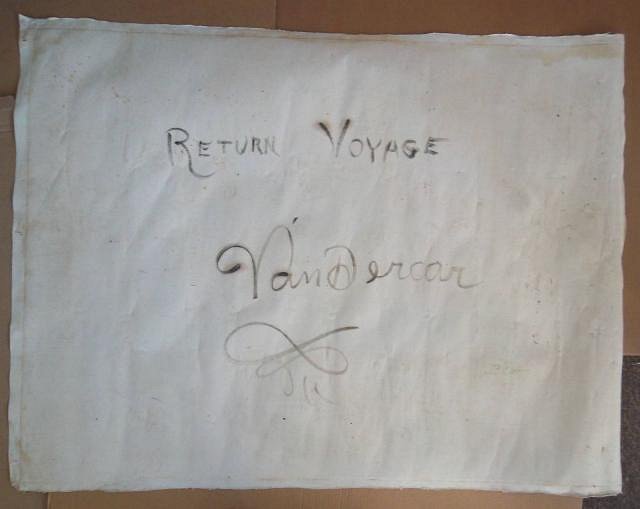 RETURN VOYAGE
VanDercar